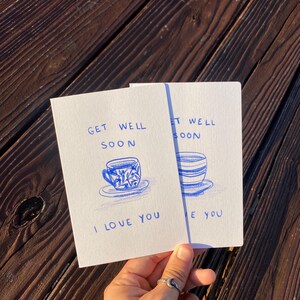 GET WELL
SOON
I LOVE YOU
GET WELL
SOON
YOU